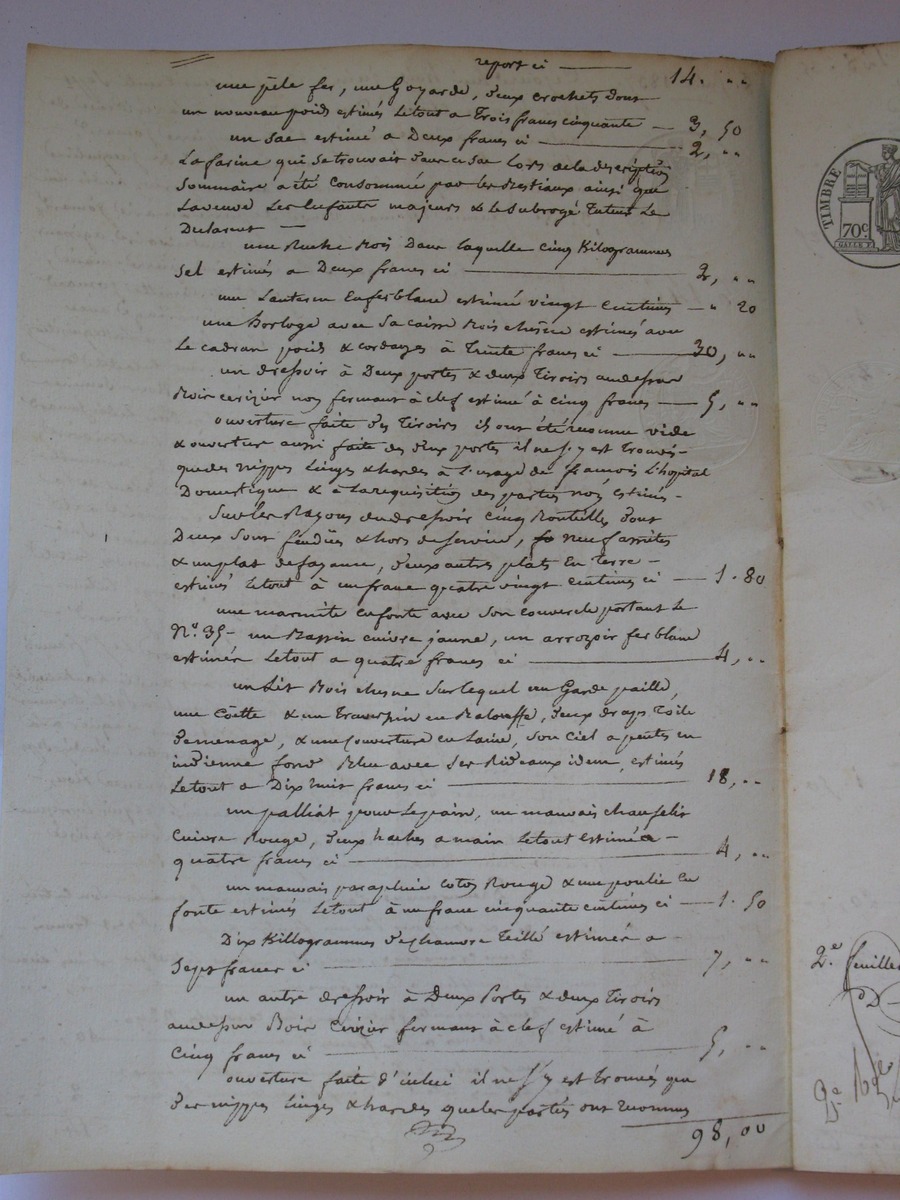 report ci — 14. „ „
une pêle fer, une Goyarde, deux crochets dont
un nouveau poids estimés Letout a Trois francs cinquante — 3, 50
un sac estimé a Deux francs ci — 2, „ „
La farine qui se trouvait dans ce sac lors de la description
Sommaire a été Consommée par les Bestiaux ainsi que
La veuve Les Enfants majeurs & le Subrogé Tuteur Le
Declarent —
une Ruche Bois Dans laquelle cinq Kilogrammes
Sel estimés a Deux francs ci — 2, „ „
une Lanterne En fer blanc estimée vingt Centimes — „ 20
une horloge avec Sa caisse Bois chesne estimés avec
Le cadran poids & cordages à Trente francs ci — 30, „ „
un dressoir à Deux portes & deux Tiroirs au dessus
Bois cerizier non fermant à clef estimé à cinq francs — 5, „ „
ouverture faite des Tiroirs ils ont été reconnu vide
& ouverture aussi faite des deux portes il ne s'y est Trouvé
que des nippes Linges & hardes à l'usage de françois L'hopital
Domestique & à la requisition des parties non estimés -
Sur les Rayons du dressoir cinq Bouteilles dont
Deux Sont fendües & hors de Service, neuf assiettes
& un plat defayance, deux autres plats En Terre -
estimés Letout à un franc quatre vingt centimes ci — 1. 80
une marmite en fonte avec Son couvercle portant le
N° 35 - un Bassin cuivre jaune, un arrozoir fer blanc
estimés Letout a quatre francs ci — 4, „ „
un Lit Bois chesne Sur lequel un Garde paille,
une Coëtte & un Traverspin en Balouffe, deux draps Toile
de menage, & une Couverture en Laine, Son Ciel a pentes en
indienne fond Bleu avec Ses Rideaux idem, estimés
Letout a Dix huit francs ci — 18, „ „
un palliat pour Le pain, un mauvais chaufelit
Cuivre Rouge, deux haches a main Letout estimé a -
quatre francs ci — 4, „ „
un mauvais parapluie coton Rouge & une poulie En
fonte estimés Letout à un franc cinquante centimes ci — 1. 50
Dix Killogrammes de chanvre Teillé estimés a -
Sept francs ci — 7, „ „
un autre dressoir à Deux Portes & deux Tiroirs
au dessus Bois Cerizier fermant à clef estimé à
Cinq francs ci — 5, „ „
ouverture faite d'icelui il ne S'y est trouvés que
des nippes Linges & hardes que les parties ont reconnus
98,00
TIMBRE
70c
2.e feuillet